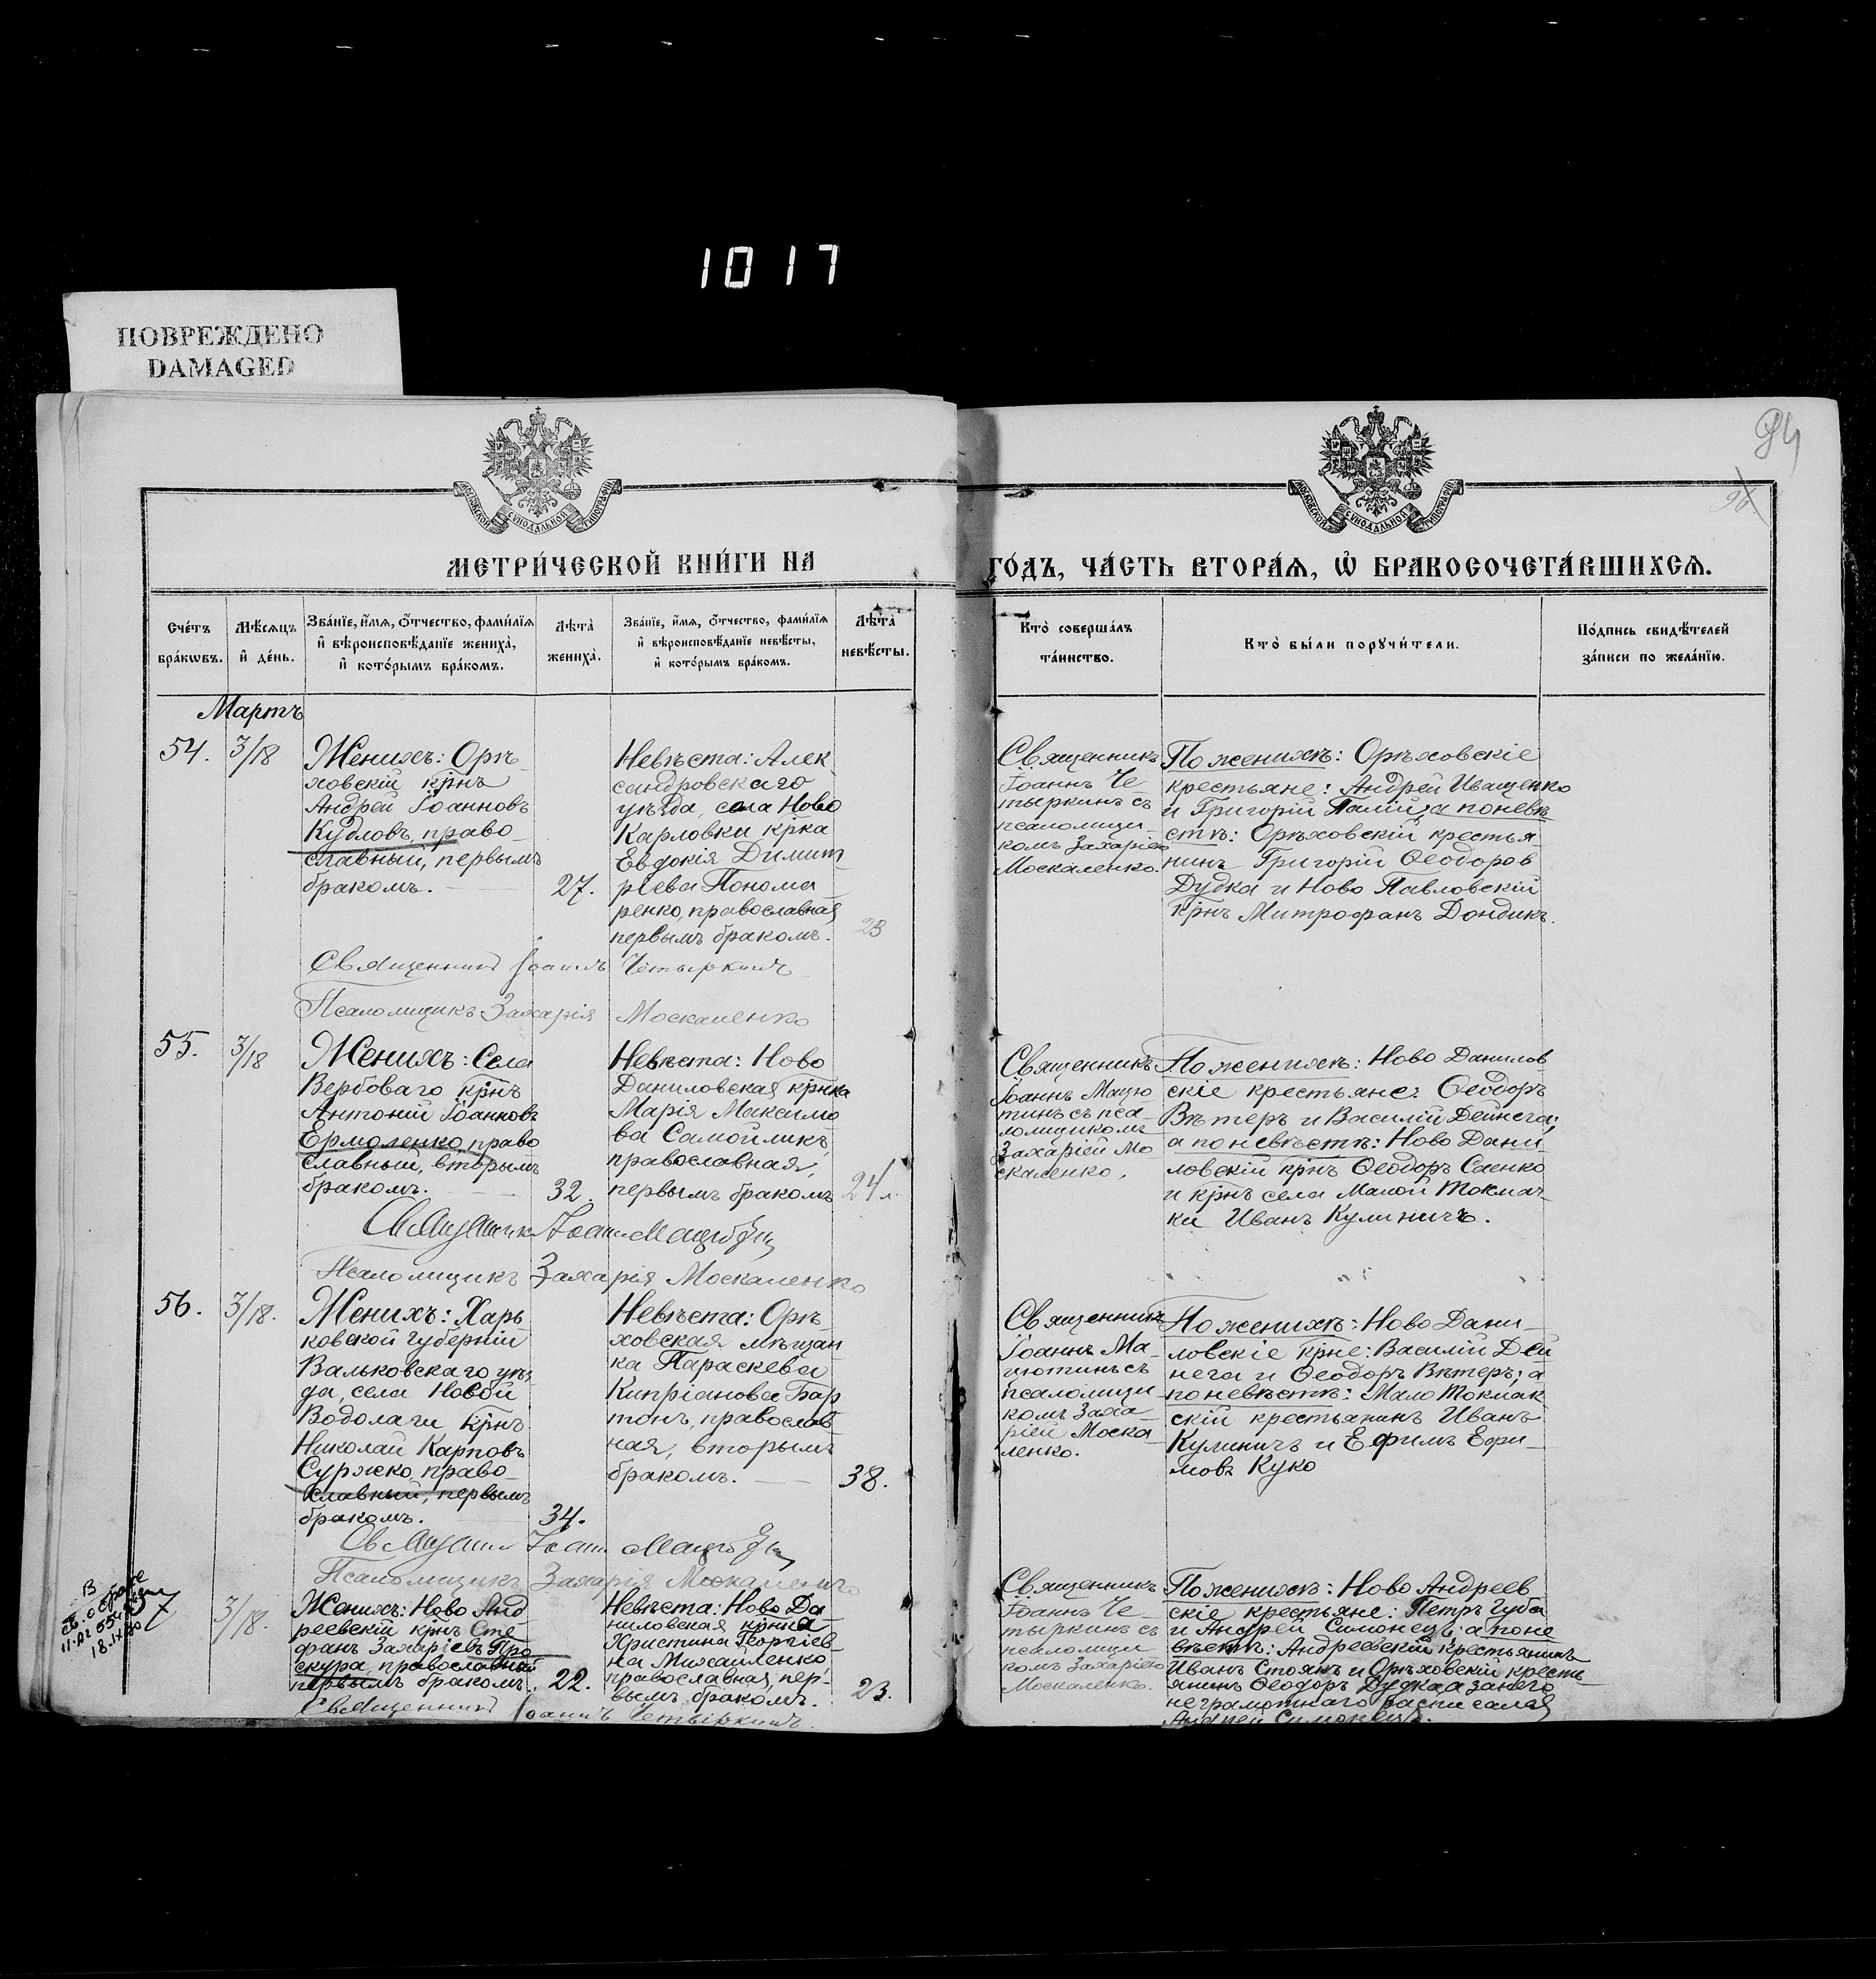 1017
ПОВРЕЖДЕНО
DAMAGED
94
МОСКОВСКОЙ СѴНОДАЛЬНОЙ ТИПОГРАФІИ
МОСКОВСКОЙ СѴНОДАЛЬНОЙ ТИПОГРАФІИ
МЕТРИ́ЧЕСКОЙ КНИ́ГИ НА
ГО́ДЪ, ЧА́СТЬ ВТОРА́Ѧ, Ѡ҆ БРАКОСОЧЕТА́ВШИХСѦ.
Сче́тъ
бра́кѡвъ.
Мѣ́сѧцъ
и҆ де́нь.
Зва́нїе, и҆́мѧ, ѻ҆́тчество, фами́лїѧ
и҆ вѣроисповѣ́данїе жениха̀,
и҆ кото́рымъ бра́комъ.
Лѣта̀
жениха̀.
Зва́нїе, и҆́мѧ, ѻ҆́тчество, фами́лїѧ
и҆ вѣроисповѣ́данїе невѣ́сты,
и҆ кото́рымъ бра́комъ.
Лѣта̀
невѣ́сты.
Кто̀ соверша́лъ
та́инство.
Кто̀ бы́ли порꙋчи́тели.
По́дпись свидѣ́телей
за́писи по жела́нїю.
Мартъ
54.
3/18
Женихъ: Орѣ-
ховскій крнъ
Андрей Іоанновъ
Кудловъ, право-
славный, первымъ
бракомъ.
27.
Невѣста: Алек
сандровскаго
уѣзда, села Ново
Карловки крка
Евдокія Димит
ріева Понома
ренко, православная
первымъ бракомъ.
23
Священникъ
Іоаннъ Че-
тыркинъ съ
псаломщи-
комъ Захаріею
Москаленко.
По женихѣ: Орѣховскіе
крестьяне: Андрей Иващенко
и Григорій Палій, а по невѣ
стѣ: Орѣховскій крестья-
нинъ Григорій Ѳеодоров
Дудка и Ново Павловскій
крнъ Митрофанъ Дондикъ.
Священникъ Іоаннъ Четыркинъ
Псаломщикъ Захарія Москаленко
55.
3/18
Женихъ: Села
Вербоваго крнъ
Антоній Іоанновъ
Ермоленко, право
славный, вторымъ
бракомъ.
32.
Невѣста: Ново
Даниловская крнка
Марія Максимо
ва Самойликъ,
православная,
первымъ бракомъ
24
Священникъ
Іоаннъ Мацю
тинъ съ пса-
ломщикомъ
Захарией Мо
скаленко.
По женихѣ: Ново Данилов
скіе крестьяне: Ѳеодоръ
Вѣтеръ и Василій Дейнега;
а по невѣстѣ: Ново Дани
ловскій крнъ Ѳеодоръ Саенко
и крнъ села Малой Токмач-
ки Иванъ Куличичъ.
Псаломщикъ Захарія Москаленко
56.
3/18.
Женихъ: Харь
ковской губерніи
Вальковскаго уѣз
да, села Новой
Водолаги крнъ
Николай Карповъ
Суржко, право-
славный, первымъ
бракомъ.
34.
Невѣста: Орѣ-
ховская мѣщан
ка Параскева
Кипріанова Бар
тонъ, православ
ная, вторымъ
бракомъ.
38.
Священникъ
Іоаннъ Ма-
цютинъ съ
псаломщи
комъ Заха-
ріей Моска
ленко.
По женихѣ: Ново Дани-
ловскіе крне: Василій Дей
нега и Ѳеодоръ Вѣтеръ; а
по невѣстѣ: Мало Токмак
скій крестьянинъ Иванъ
Куличичъ и Ефимъ Ефи-
мовъ Куко
Псаломщикъ Захарія Москаленко
57
3/18.
Женихъ: Ново Анд
реевскій крнъ Сте
фанъ Захаріевъ Про
скура, православный
первымъ бракомъ.
22.
Невѣста: Ново Да-
ниловская крнка
Христина Георгіев
на Михайленко,
православная, пер-
вымъ, бракомъ.
23.
Священникъ
Іоаннъ Че-
тыркинъ съ
псаломщи
комъ Захаріею
Москаленко.
По женихѣ: Ново Андреев
скіе крестьяне: Петръ Губа
и Андрей Симонецъ; а по не
вѣстѣ: Андреевскій крестьянинъ
Иванъ Стоянъ и Орѣховскій кресть
янинъ Ѳеодоръ Дудка а за него
неграмотнаго росписался
Андрей Симонецъ.
Священникъ Іоаннъ Четыркинъ.